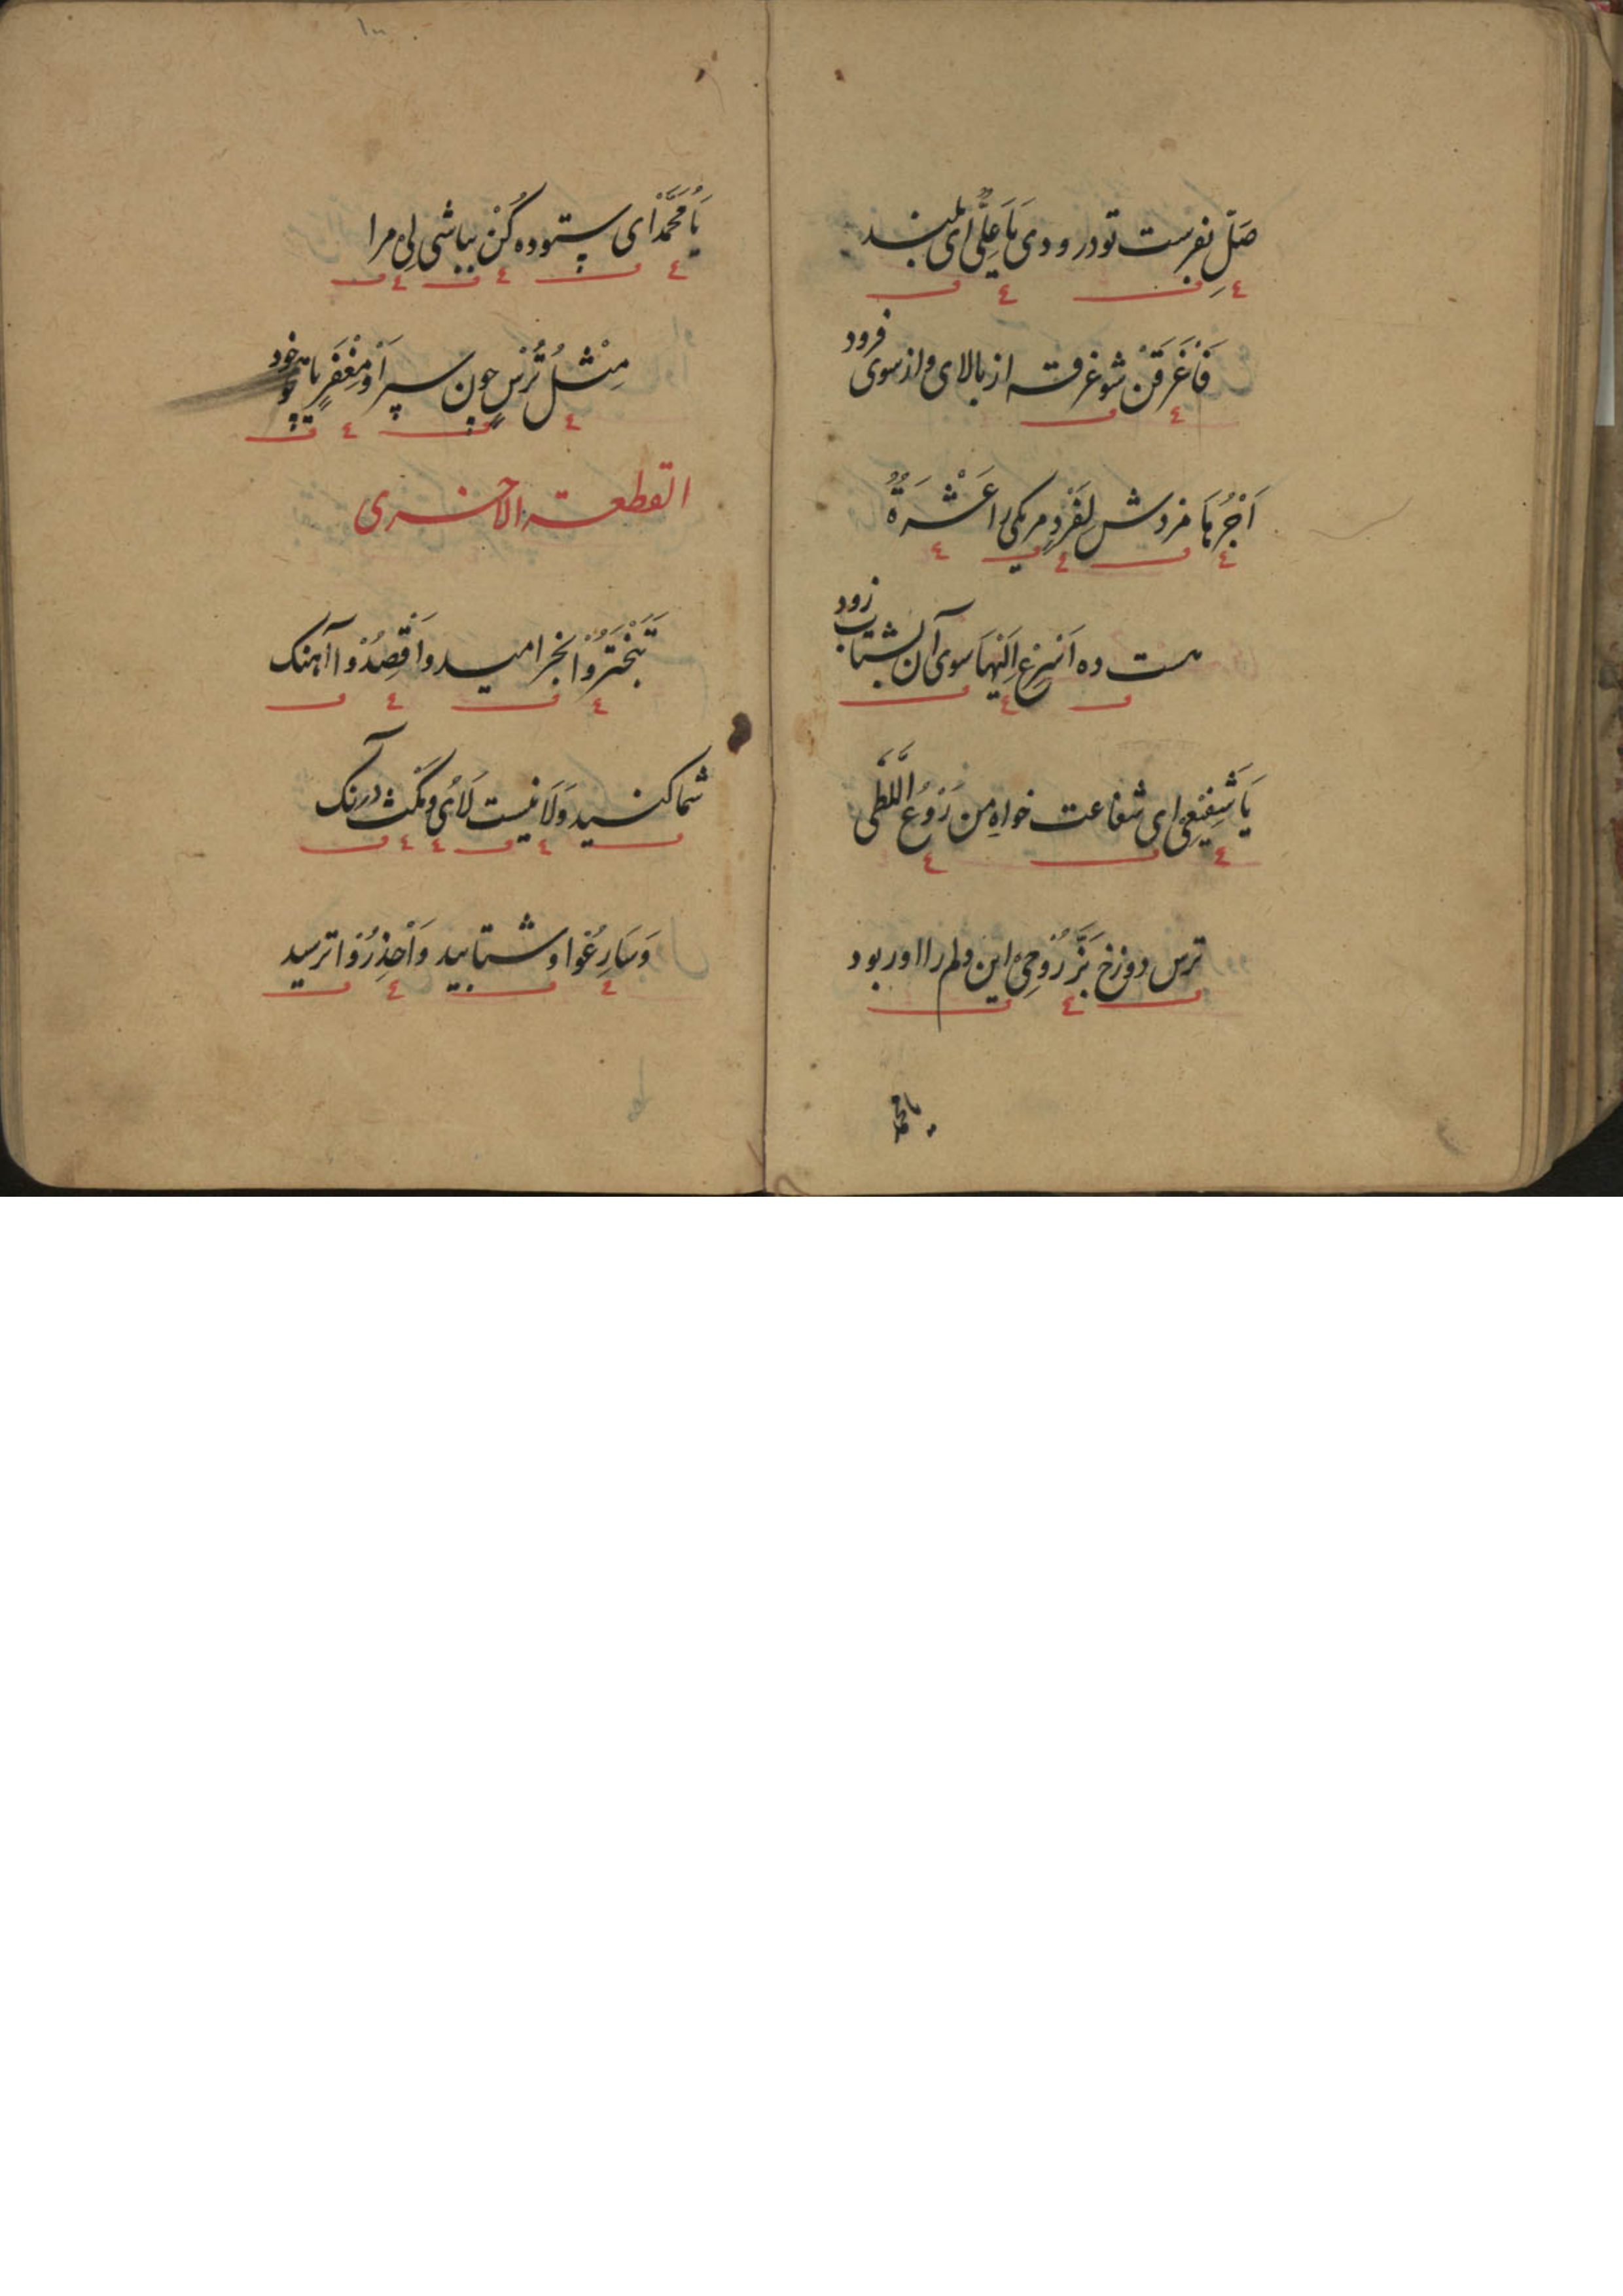 صَلِّ بفرست تو درودی یَا عَلِیُّ ای بلند
فَاغْرَقَنْ شو غرقه از بالای و از سوی فرود
اَجْرُهَا مزدش لِفَرْدٍ مر یکی را عَشْرَةٌ
هست ده اَسْرِعْ اِلَیْهَا سوی آن بشتاب زود
یَا شَفِیْعِیْ ای شفاعت خواهِ من رَوْعُ اللَّظٰی
ترس دوزخ بَزَّ رُوْحِیْ این دلم را او ربود
یا محمد
یَا مُحَمَّدْ ای ستوده کُنْ بباشی لِیْ مرا
مِثْلُ تُرْسٍ چون سپر اَوْ مِغْفَرٍ یا همچو خود
القطعة الاخری
تَبَخْتَرُوْا بخرامید وَاقْصُدُوْا آهنک
شما کنید وَلَا نیست لَأْیٌ و مَکْث درنک
وَسَارِعُوا و شتابید وَاحْذِرُوْا ترسید